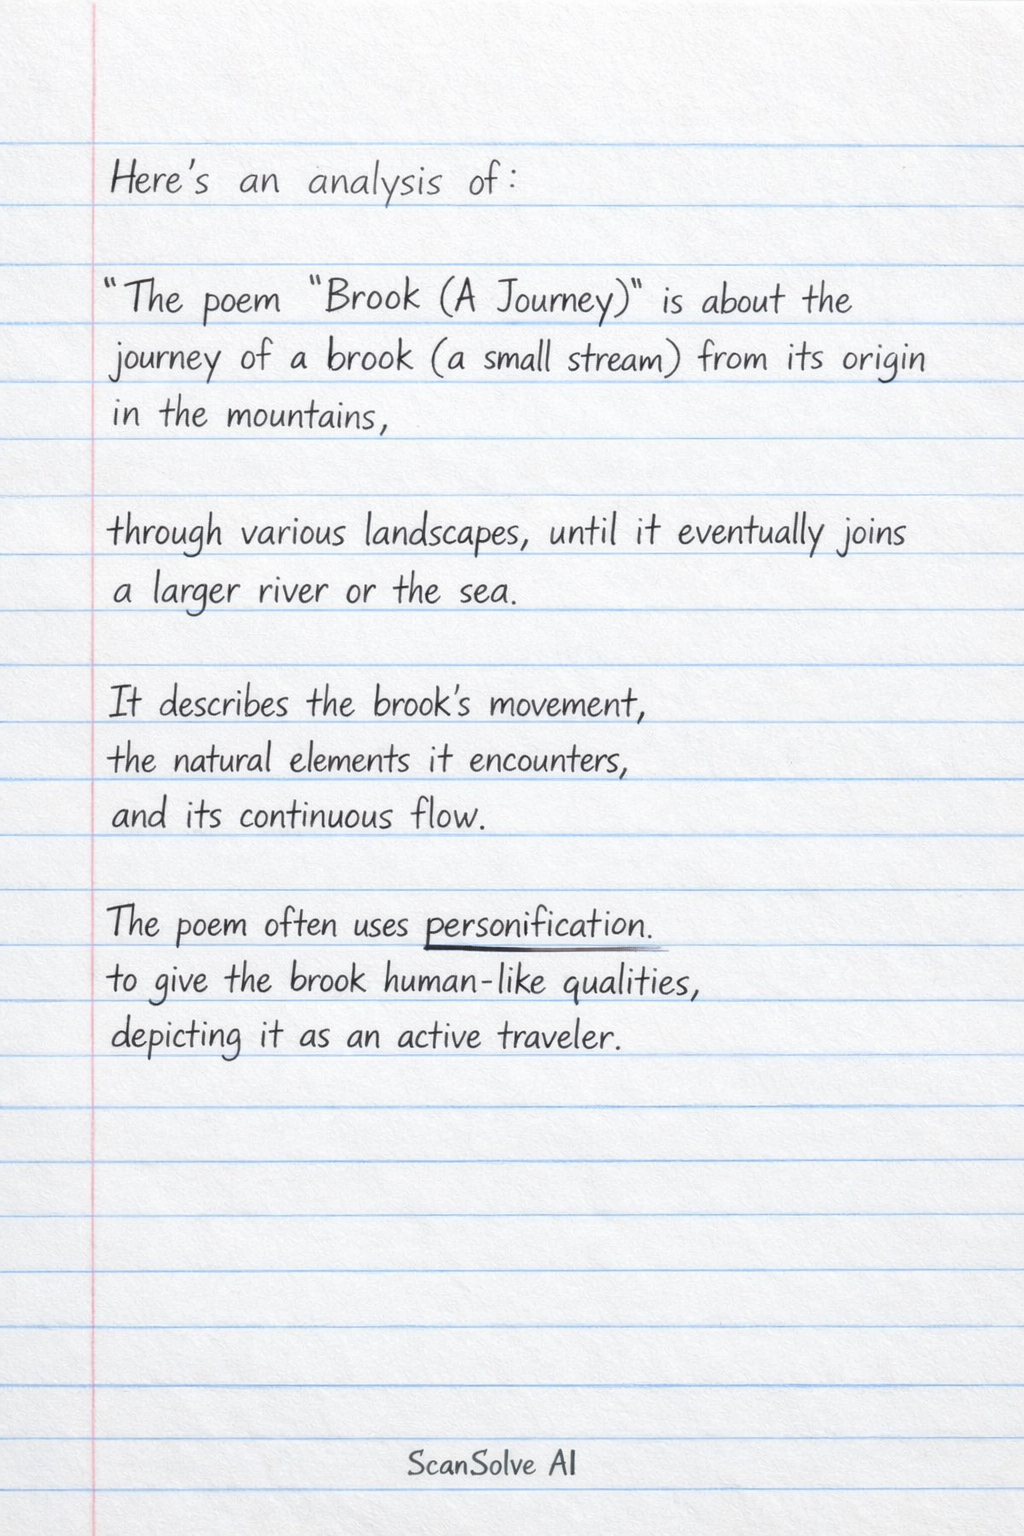 Here's an analysis of:
"The poem "Brook (A Journey)" is about the
journey of a brook (a small stream) from its origin
in the mountains,
through various landscapes, until it eventually joins
a larger river or the sea.
It describes the brook's movement,
the natural elements it encounters,
and its continuous flow.
The poem often uses personification.
to give the brook human-like qualities,
depicting it as an active traveler.
ScanSolve AI